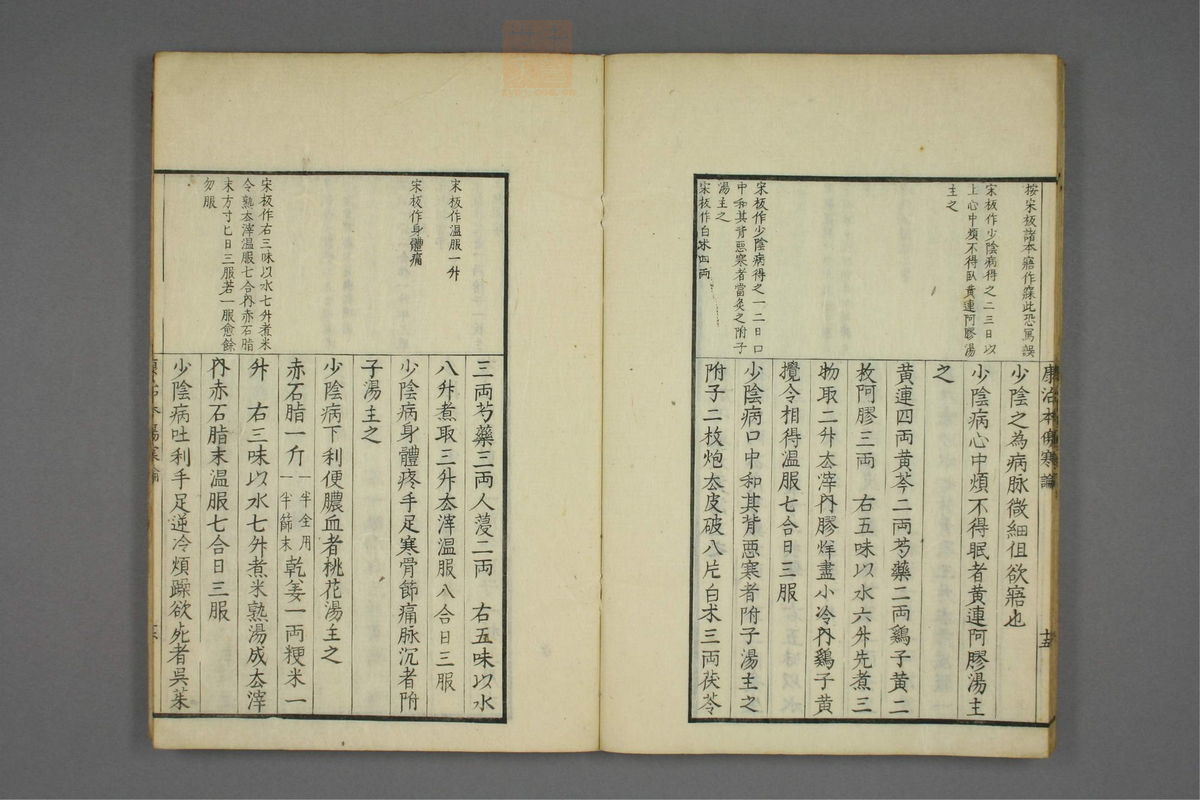 按宋板諸本寤作寐此恐寫誤
宋板作少陰病得之二三日以
上心中煩不得臥黄連阿膠湯
主之
宋板作少陰病得之一二日口
中和其背惡寒者當灸之附子
湯主之
宋板作白朮四両
康治本傷寒論
十五
少陰之為病脉微細但欲寤也
少陰病心中煩不得眠者黄連阿膠湯主
之
黄連四両黄芩二両芍藥二両鷄子黄二
枚阿膠三両　右五味以水六升先煮三
物取二升去滓內膠烊盡小冷內鷄子黄
攪令相得温服七合日三服
少陰病口中和其背惡寒者附子湯主之
附子二枚炮去皮破八片白朮三両茯苓
宋板作温服一升
宋板作身體痛
宋板作右三味以水七升煮米
令熟去滓温服七合內赤石脂
末方寸匕日三服若一服愈餘
勿服
三両芍藥三両人薓二両　右五味以水
八升煮取三升去滓温服八合日三服
少陰病身體疼手足寒骨節痛脉沉者附
子湯主之
少陰病下利便膿血者桃花湯主之
赤石脂一斤一半全用一半篩末乾姜一両粳米一
升　右三味以水七升煮米熟湯成去滓
內赤石脂末温服七合日三服
少陰病吐利手足逆冷煩躁欲死者呉茱